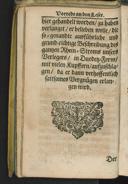 Vorrede an den Leser.
hier gehandelt worden / zu haben
verlanget / er beliebe
so / genandte ausführliche und
grund-richtige Beschreibung des
gantzen Rhein-Stroms unsers
Verlegers / in Duodez-Format
mit vielen Kupffern / aufzuschla-
gen / da er dann verhoffentlich
sattsames Vergnügen erlan-
gen wird.
Der